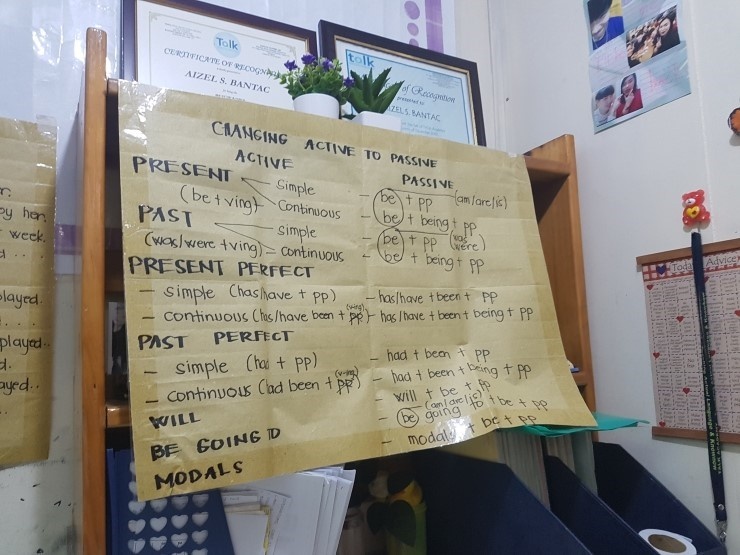 Talk
CERTIFICATE OF RECOGNITION
AIZEL S. BANTAC
talk
of Recognition
presented to
AIZEL S. BANTAC
CHANGING ACTIVE TO PASSIVE
ACTIVE PASSIVE
PRESENT Simple - be + pp (am/are/is)
(be + ving) Continuous - be + being + pp
PAST - Simple - be + pp (was/were)
(was/were + ving) - continuous - be + being + pp
PRESENT PERFECT
- simple (has/have + pp) - has/have + been + pp
- continuous (has/have been + pp (v-ing)) - has/have + been + being + pp
PAST PERFECT
- simple (had + pp) - had + been + pp
- continuous (had been + pp (v-ing)) - had + been + being + pp
WILL - will + be + pp
BE GOING TO - be (am/are/is) going to + be + pp
MODALS - modals + be + pp
week.
played.
played..
Today Advice